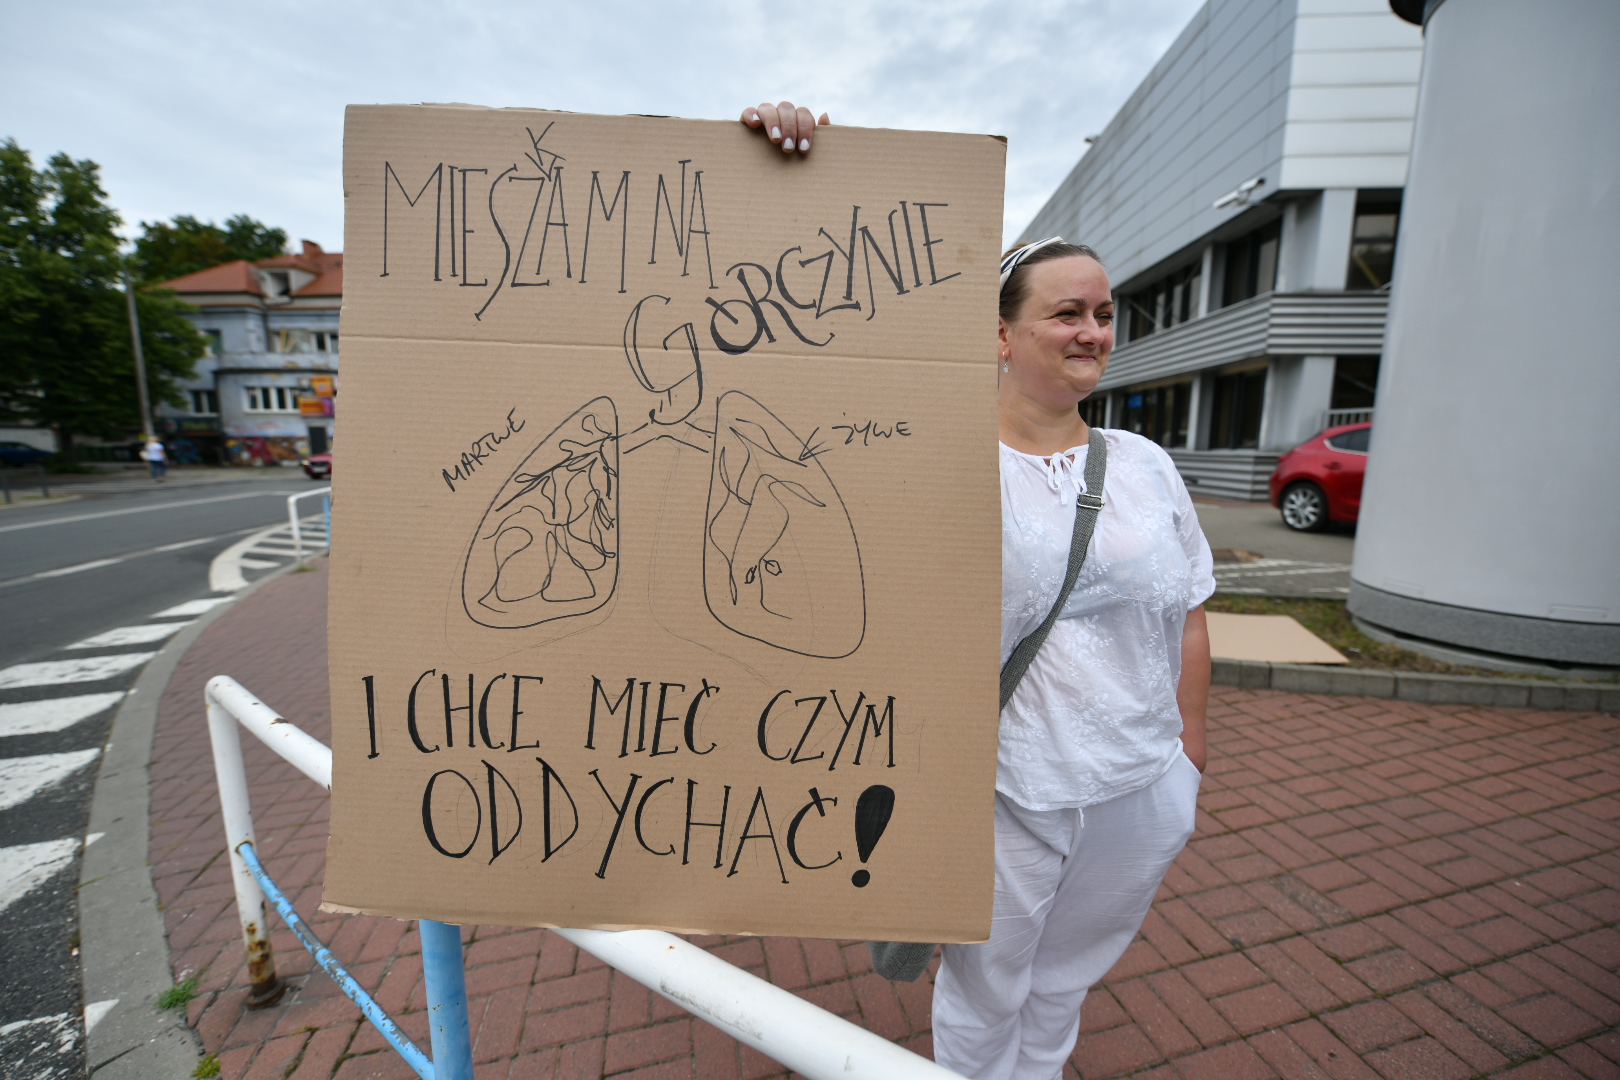 MIESZKAM NA
GÓRCZYNIE
MARTWE
ŻYWE
I CHCE MIEĆ CZYM
ODDYCHAĆ!